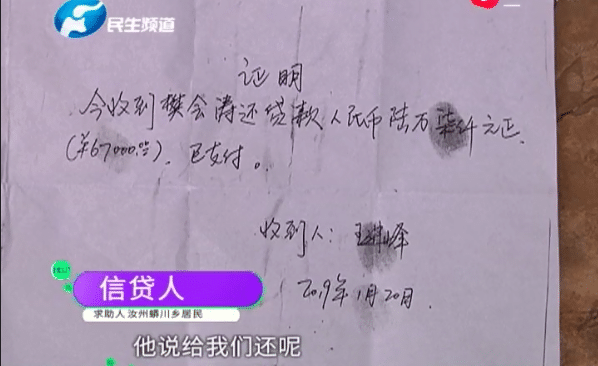 民生频道
证明
今收到樊会涛还贷款人民币陆万柒仟元正
(¥67000.00). 已支付。
收到人: 王
峰
2019年1月20日.
信贷人
求助人 汝州蟒川乡居民
他说给我们还呢